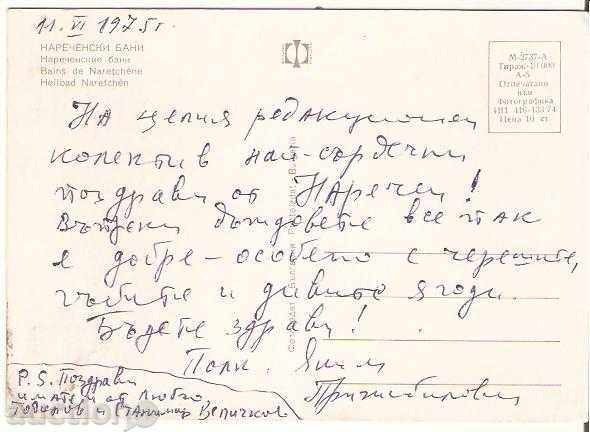 11. VI 1975 г.
НАРЕЧЕНСКИ БАНИ
Нареченские бани
Bains de Naretchène
Heilbad Naretchén
М-2737-А
А-5
Отпечатано
във
Фотографика
Цена 10 ст
На целия редакционен
колектив най-сърдечни
поздрави от Наречен!
Въпреки дъждовете все пак
е добре – особено с черешите,
гъбите и дивите ягоди.
Бъдете здрави!
Полк.
P.S. Поздрави
имате и от Любчо
Тодоров и Станимир Величков